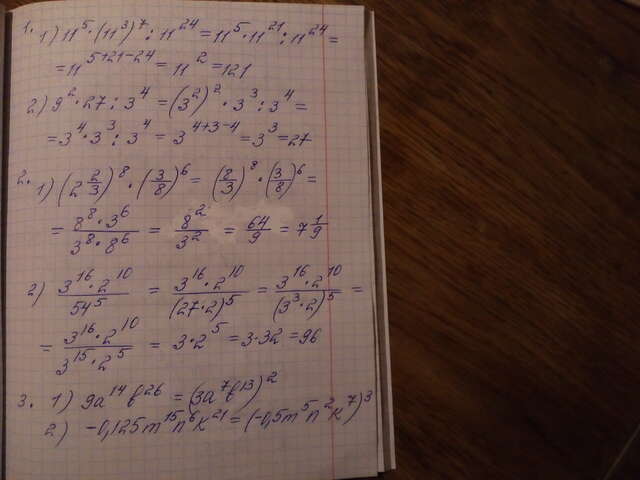 1. 1) 11⁵·(11³)⁷:11²⁴=11⁵·11²¹:11²⁴=
=11⁵⁺²¹⁻²⁴=11²=121
2) 9²·27:3⁴=(3²)²·3³:3⁴=
=3⁴·3³:3⁴=3⁴⁺³⁻⁴=3³=27
2. 1) (2 2/3)⁸·(3/8)⁶=(8/3)⁸·(3/8)⁶=
=8⁸·3⁶/3⁸·8⁶=8²/3²=64/9=7 1/9
2) 3¹⁶·2¹⁰/54⁵=3¹⁶·2¹⁰/(27·2)⁵=3¹⁶·2¹⁰/(3³·2)⁵=
=3¹⁶·2¹⁰/3¹⁵·2⁵=3·2⁵=3·32=96
3. 1) 9a¹⁴b²⁶=(3a⁷b¹³)²
2) -0,125m¹⁵n⁶k²¹=(-0,5m⁵n²k⁷)³